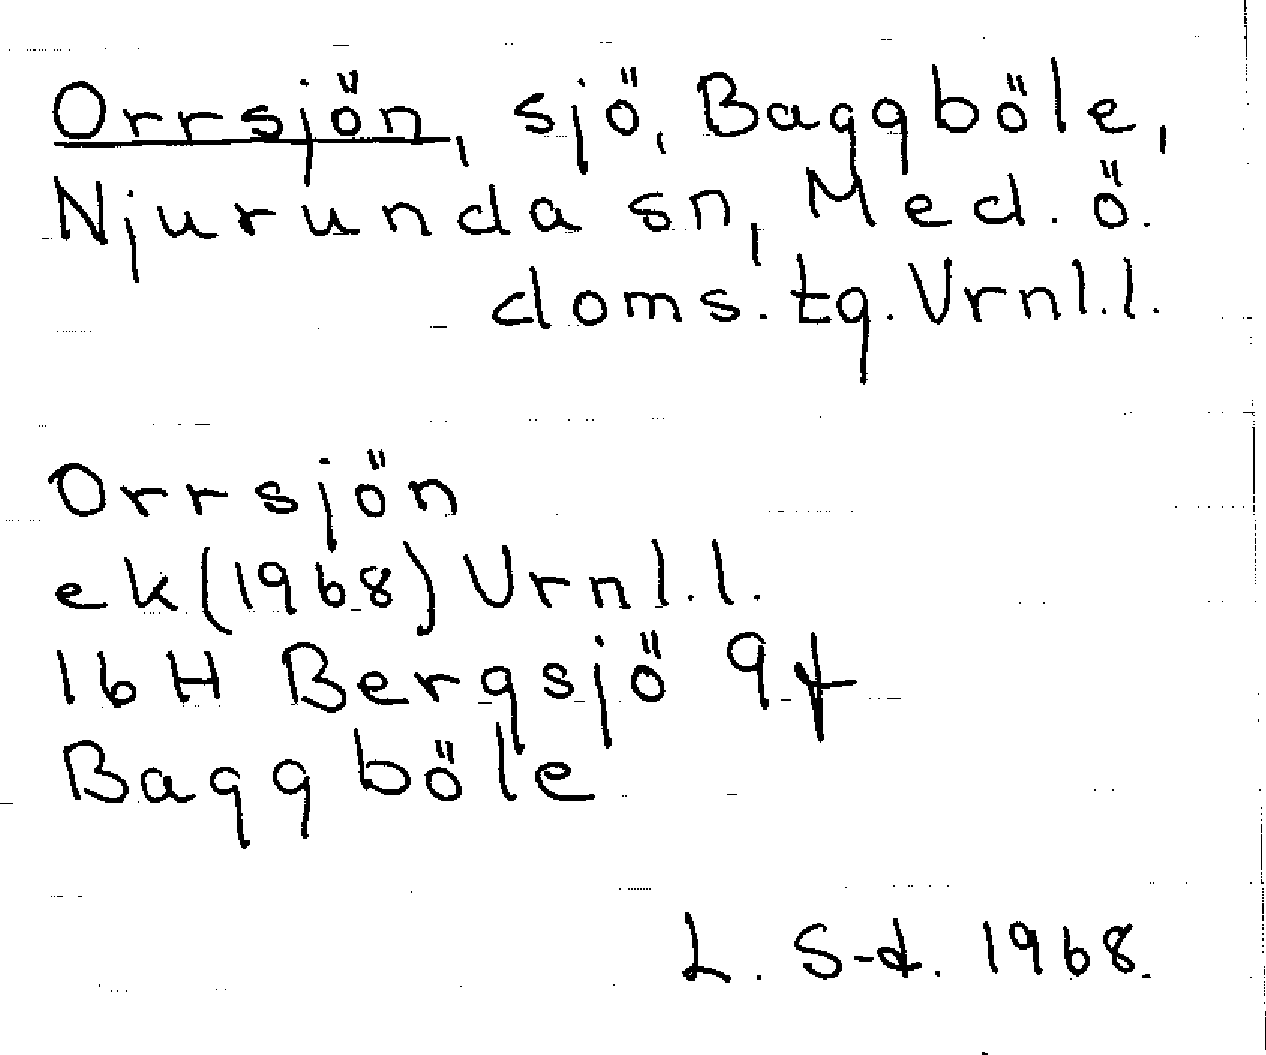 Orrsjön, sjö, Baggböle,
Njurunda sn, Med. ö.
doms. tg. Vrnl.l.
Orrsjön
ek (1968) Vrnl.l.
16 H Bergsjö 9 f
Baggböle
L. S-d. 1968.